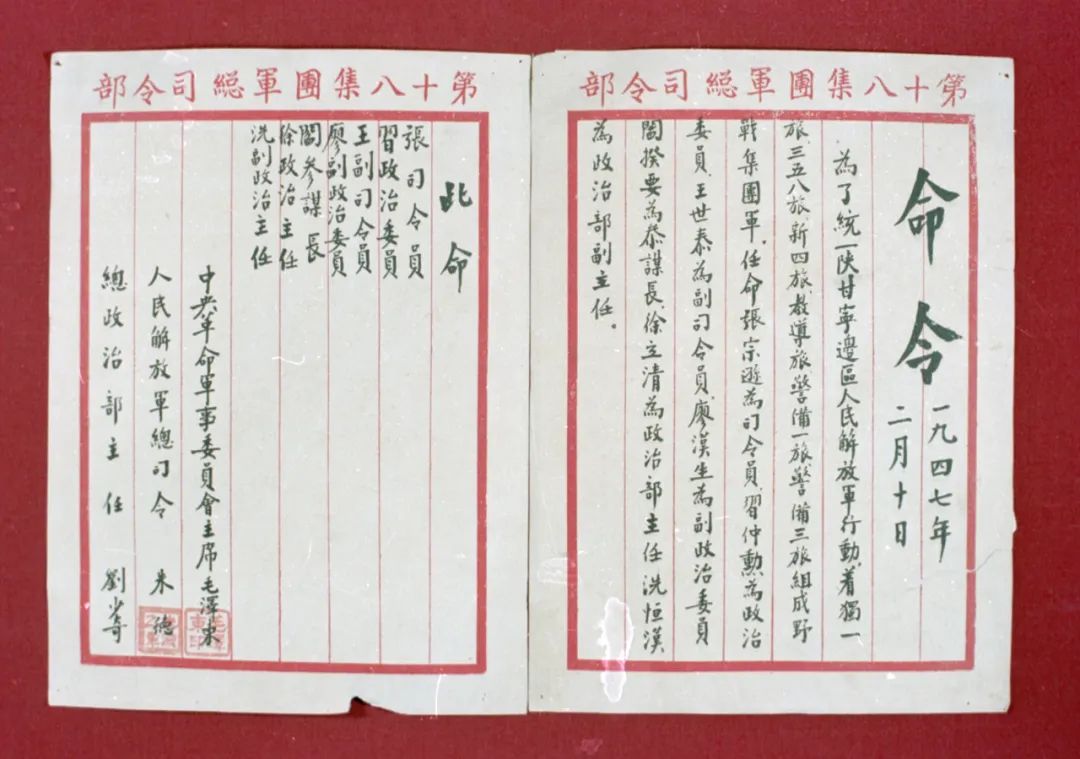 第十八集團軍緫司令部
命令
一九四七年
二月十日
為了統一陝甘寧邊區人民解放軍行動，着獨一
旅、三五八旅、新四旅、教導旅、警備一旅、警備三旅組成野
戰集團軍，任命張宗遜為司令員，習仲勳為政治
委員，王世泰為副司令員，廖漢生為副政治委員
閻揆要為叅謀長，徐立清為政治部主任，冼恒漢
為政治部副主任。
第十八集團軍緫司令部
此命
張司令員
習政治委員
王副司令員
廖副政治委員
閻參謀長
徐政治主任
冼副政治主任
中央革命軍事委員會主席毛澤東
人民解放軍總司令 朱德
總政治部主任 劉少奇